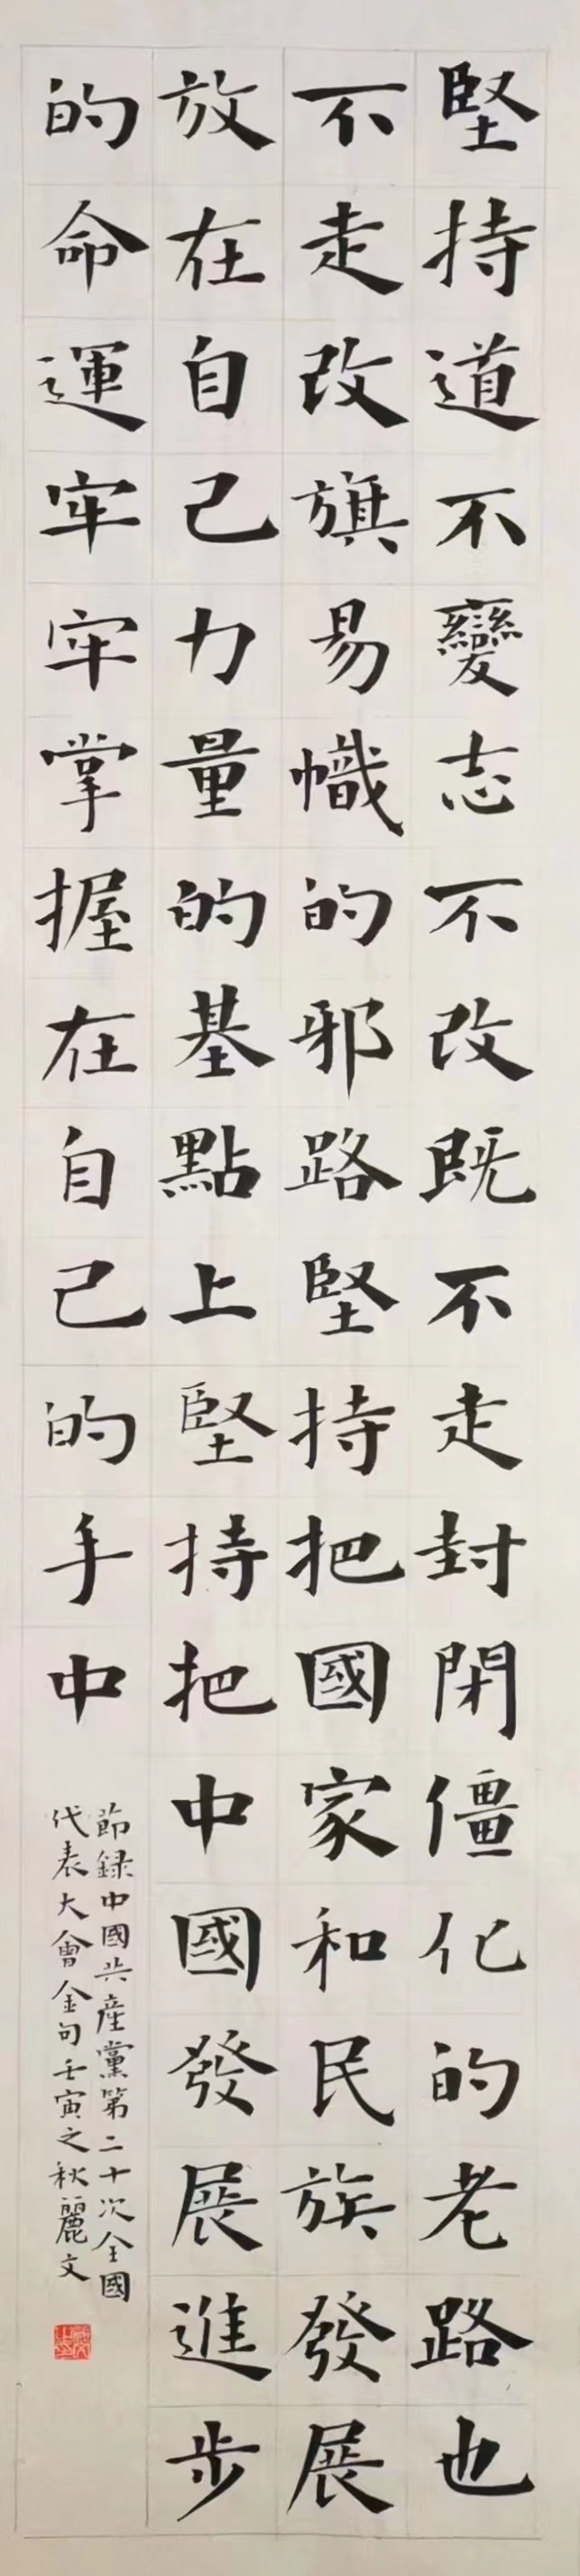 堅持道不變志不改既不走封閉僵化的老路也
不走改旗易幟的邪路堅持把國家和民族發展
放在自己力量的基點上堅持把中國發展進步
的命運牢牢掌握在自己的手中
節録中國共産黨第二十次全國
代表大會金句壬寅之秋麗文